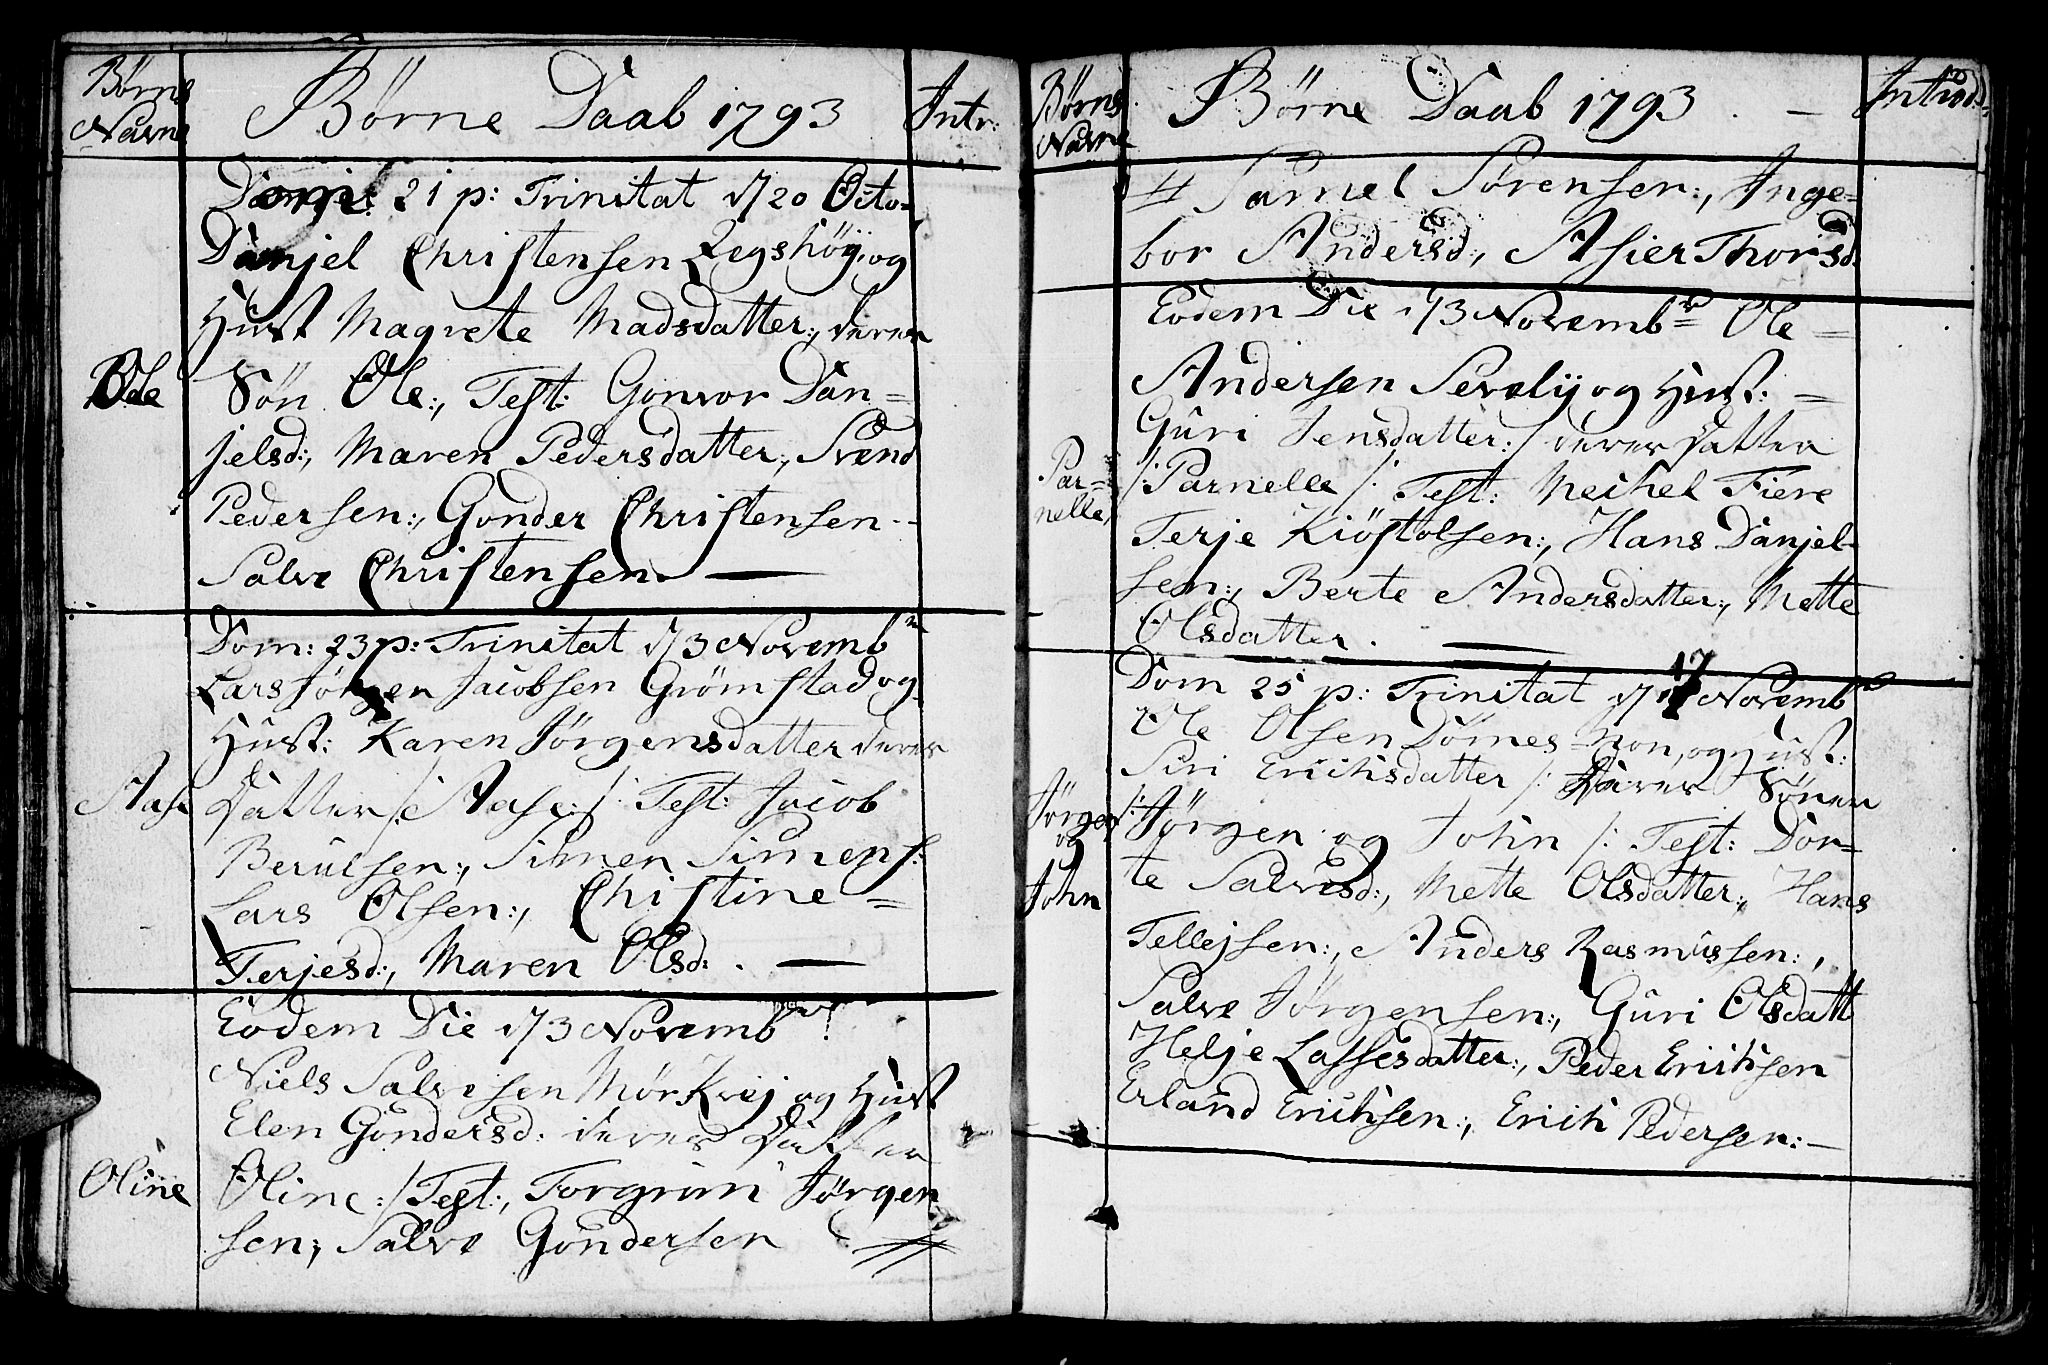 Børns
Navne
Børne Daab 1793
Intr:
Domi: 21 p: Trinitat d 20 Octo-
Danjel Christensen Legshöÿ og
Hust Magrete Madsdatter:, deres
Ole
Sön Ole:, Test: Gonvor Dan=
jelsd:, Maren Pedersdatter:, Svend
Pedersen:, Gonder Christensen--
Salve Christensen. —
Dom: 23 p: Trinitat d 3 Novembr
Lars Jörgen Jacobsen Grömstad og
Hust: Karen Jörgensdatter deres
Aase
Datter /: Aase :/: Test: Jacob
Berulsen:, Simen Simens:
Lars Olsen:, Christine =
Terjesd:, Maren Olsd: . —
Eodem Die d 3 Novembr:
Niels Salvesen Mörkvej og Hust
Elen Gundersd: deres Datter
Oline
Oline :/ Test:, Torgrim Jörgen
sen:, Salve Gondersen //
Børns
Navne
Børne Daab 1793 . —
Introd:
// Samel Sörensen:, Inge-
bor Andersd:, Asier Thorsd:
Eodem Die d 3 Novembr Ole =
Andersen Sevelÿ og Hust: =
Guri Jensdatter :/ deres Datter
Par=
nelle
/: Parnelle /: Test: Meikel Fiere
Terje Kiöstolsen:, Hans Danjel-
sen:, Berte Andersdatter:, Mette
Olsdatter . —
Dom 25 p: Trinitat d 17 Novembr
Ole Olsen Dömesmon, og Hust:
Siri Erichsdatter /: Deres Söner
Jörgen
og
John
/: Jörgen og John /: Test: Dor=
te Salvesd:, Mette Olsdatter:, Hans
Tellejsen:, Anders Rasmussen:,
Salve Jörgensen:, Guri Olsdatt
Helje Lassesdatter:, Peder Erichsen
Erland Erichsen:, Erich Pedersen: —